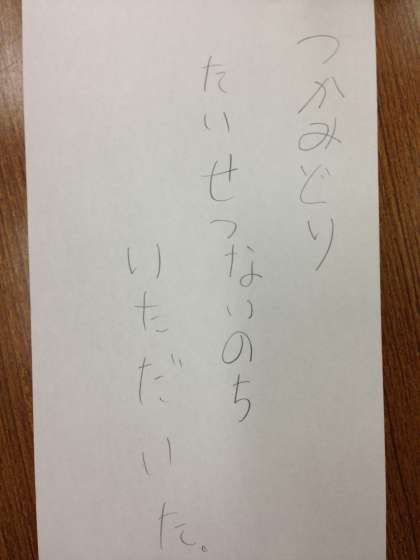 つかみどり
たいせつないのち
いただいた。